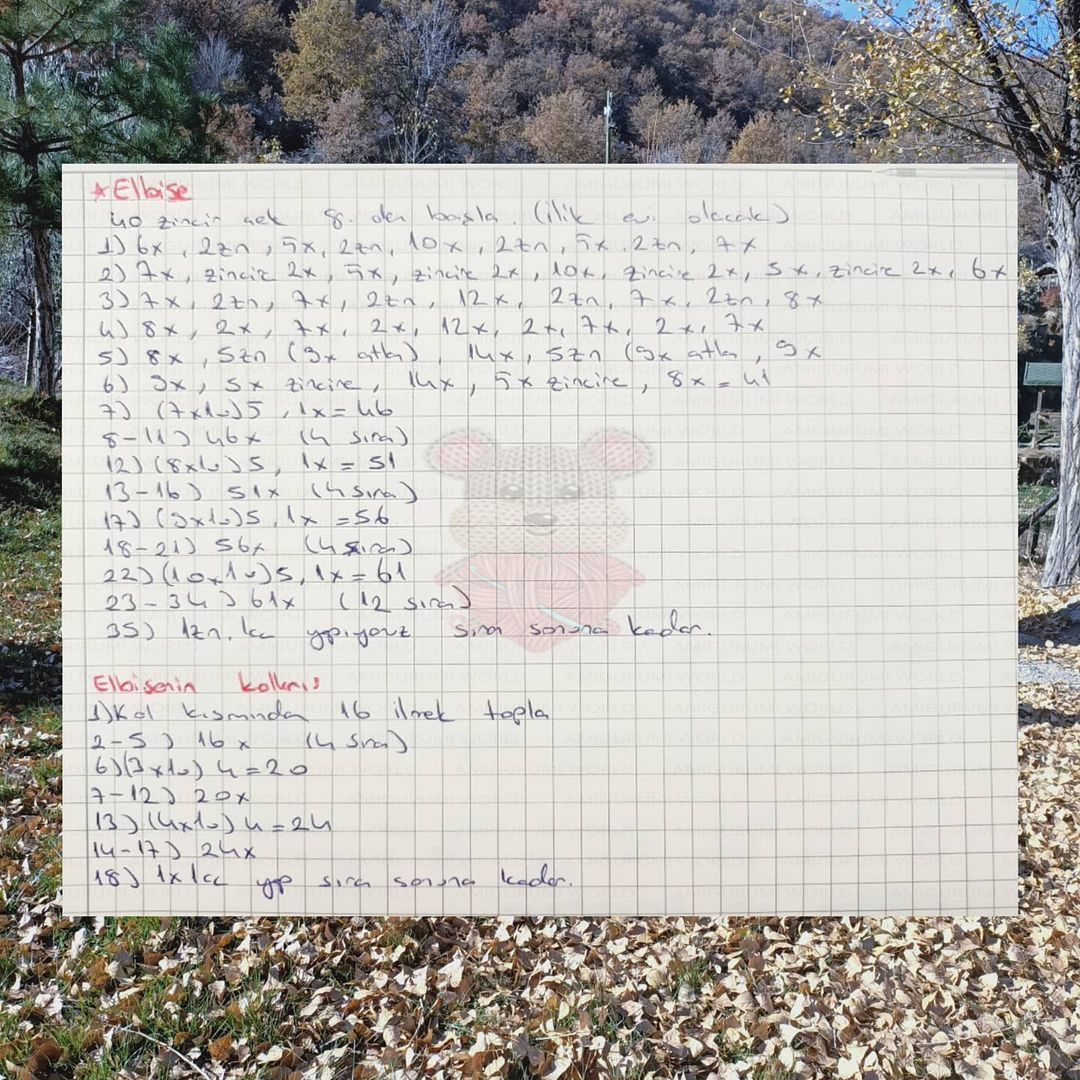 ★ Elbise
40 zincir çek 8. den başla (ilik evi olacak)
1) 6x, 2zn, 5x, 2zn, 10x, 2zn, 5x, 2zn, 7x
2) 7x, zincire 2x, 5x, zincire 2x, 10x, zincire 2x, 5x, zincire 2x, 6x
3) 7x, 2zn, 7x, 2zn, 12x, 2zn, 7x, 2zn, 8x
4) 8x, 2x, 7x, 2x, 12x, 2x, 7x, 2x, 7x
5) 8x, 5zn (9x atla), 14x, 5zn (9x atla, 9x
6) 9x, 5x zincire, 14x, 5x zincire, 8x = 41
7) (7x1v)5, 1x = 46
8-11) 46x (4 sıra)
12) (8x1v)5, 1x = 51
13-16) 51x (4 sıra)
17) (9x1v)5, 1x = 56
18-21) 56x (4 sıra)
22) (10x1v)5, 1x = 61
23-34) 61x (12 sıra)
35) 1zn, 1cc yapıyoruz sıra sonuna kadar.
Elbisenin kolları
1) Kol kısmından 16 ilmek topla
2-5) 16x (4 sıra)
6) (3x1v) 4 = 20
7-12) 20x
13) (4x1v) 4 = 24
14-17) 24x
18) 1x 1cc yap sıra sonuna kadar.
AMIGURUMI WORLD